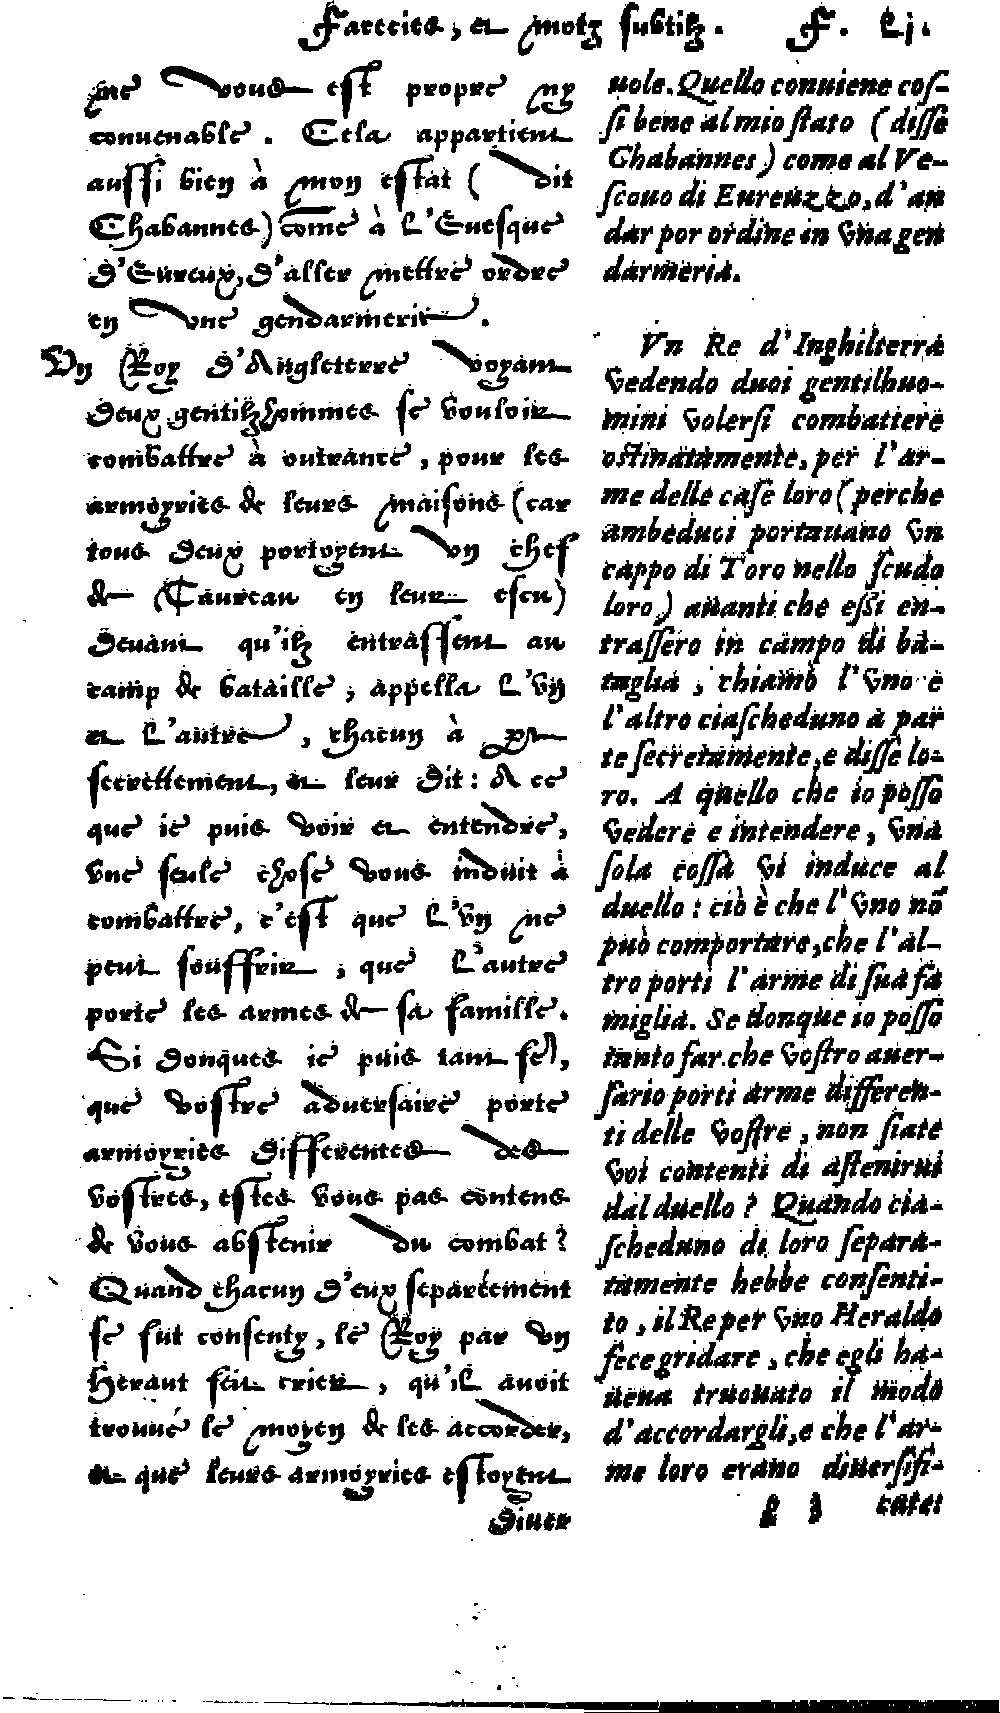 Facecies, et motz subtilz. F. Lj.
ne vous est propre ny
conuenable. Cela appartient
aussi bien à mon estat ( dit
Chabannes) cõme à L'Euesque
d'Eureux, d'aller mettre ordre
en vne gendarmerie.
Vn Roy d'Angleterre voyant
deux gentilzhommes se vouloir
combattre à outrance, pour les
armoyries de leurs maisons (car
tous deux portoyent vn chef
de Taureau en leur escu)
deuant qu'ilz entrassent au
camp de bataille, appella L'vn
et L'autre, chacun à part
secrettement, et leur dit: A ce
que ie puis voir et entendre,
vne seule chose vous induit à
combattre, c'est que L'vn ne
peut souffrir, que L'autre
porte les armes de sa famille.
Si donques ie puis tant fere,
que vostre aduersaire porte
armoyries differentes des
vostres, estes vous pas contens
de vous abstenir du combat?
Quand chacun d'eux separément
se fut consenty, le Roy par vn
Heraut feit crier, qu'il auoit
trouué le moyen de les accorder,
et que leurs armoyries estoyent
diuer
uole. Quello conuiene cos-
si bene al mio stato (disse
Chabannes) come al Ve-
scouo di Eureuzzo, d'an
dar por ordine in vna gen
darmeria.
Vn Re d'Inghilterra
vedendo duoi gentilhuo-
mini volersi combattere
ostinatamente, per l'ar-
me delle case loro (perche
ambeduci portauano vn
cappo di Toro nello scudo
loro) auanti che essi en-
trassero in campo di ba-
taglia, chiamò l'vno e
l'altro ciascheduno a par
te secretamente, e disse lo-
ro. A quello che io posso
vedere e intendere, vna
sola cossa vi induce al
duello: ciò è che l'vno nõ
può comportare, che l'al-
tro porti l'arme di sua fa
miglia. Se donque io posso
tanto far che vostro auer-
sario porti arme differen-
ti delle vostre, non siate
voi contenti di astenirui
dal duello? Quando cia-
scheduno di loro separa-
tamente hebbe consenti-
to, il Re per vno Heraldo
fece gridare, che egli ha-
uena truouato il modo
d'accordargli, e che l'ar-
me loro erano diuersifi-
g 3 cate: